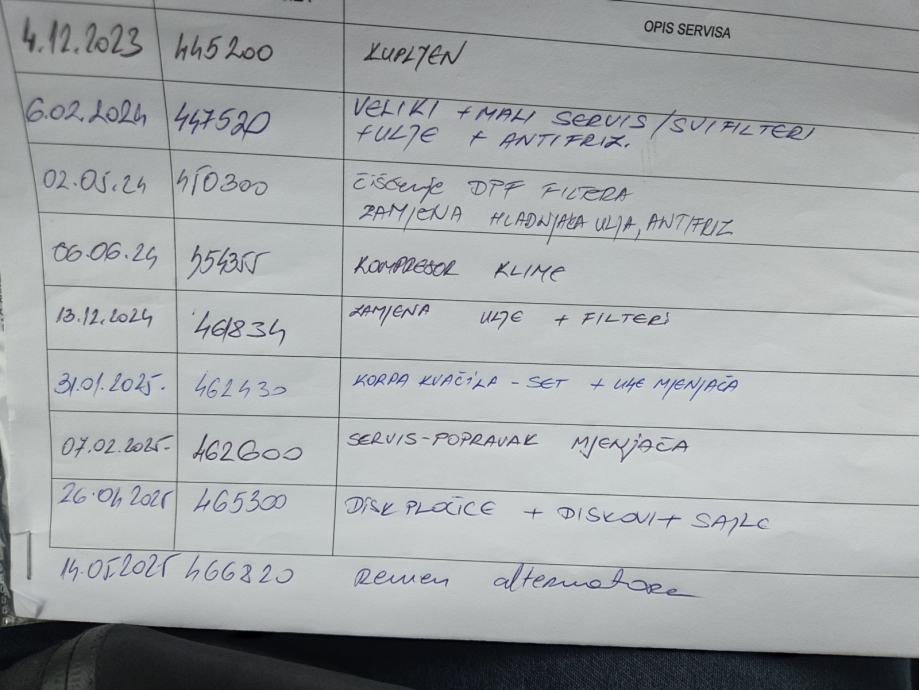 OPIS SERVISA
4.12.2023 445200 KUPLJEN
6.02.2024 447520 VELIKI + MALI SERVIS/SVI FILTERI
+ ULJE + ANTIFRIZ.
02.05.24 450300 ČIŠĆENJE DPF FILTERA
ZAMJENA HLADNJAKA ULJA, ANTIFRIZ
06.06.24 454355 KOMPRESOR KLIME
13.12.2024 461834 ZAMJENA ULJE + FILTERI
31.01.2025. 462430 KORPA KVAČILA - SET + ULJE MJENJAČA
07.02.2025. 462600 SERVIS-POPRAVAK MJENJAČA
26.04.2025 465300 DISK PLOČICE + DISKOVI + SAJLE
14.05.2025 466820 Remen alternatora